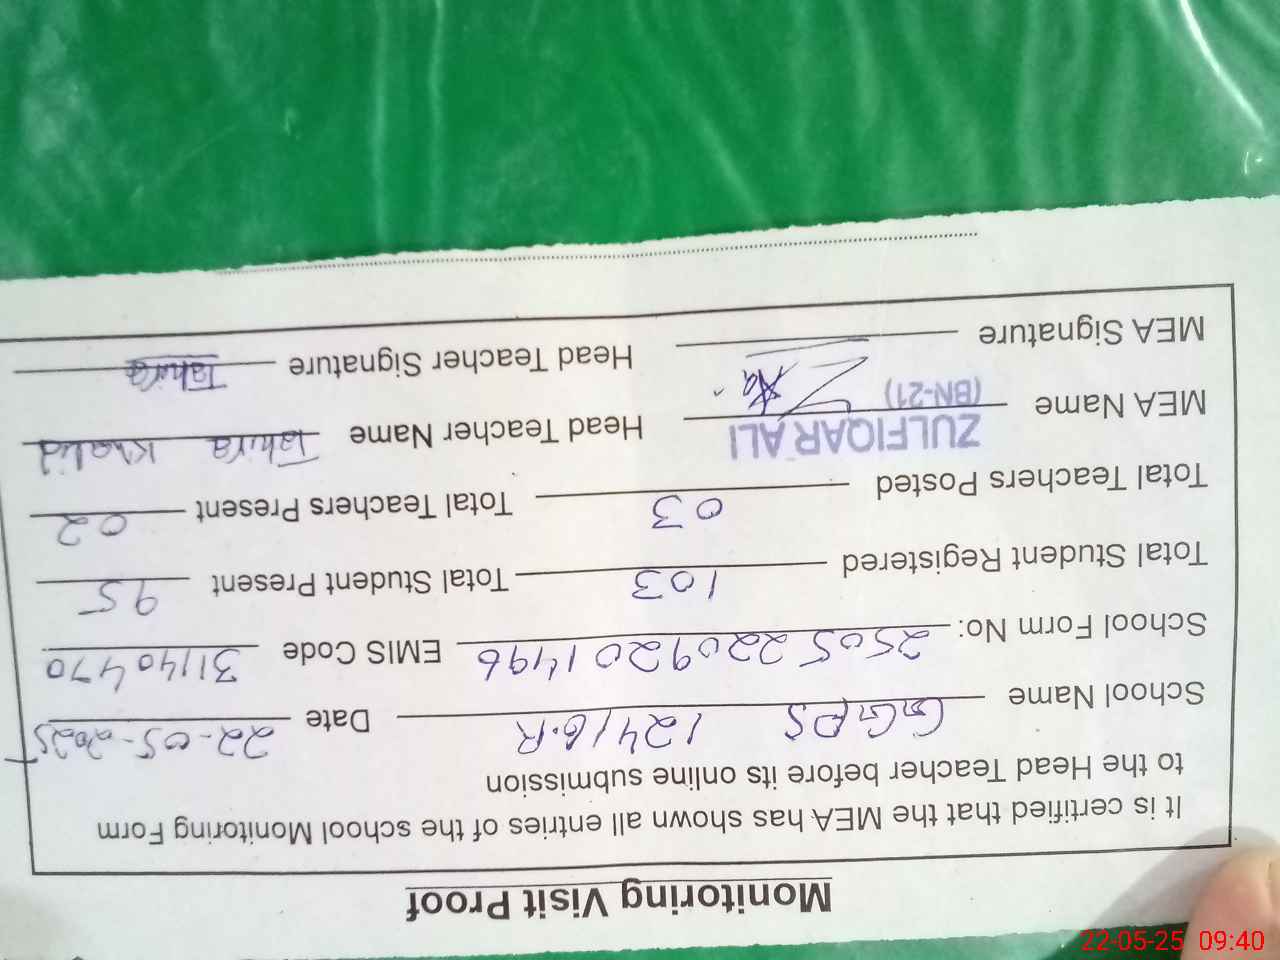 Monitoring Visit Proof
It is certified that the MEA has shown all entries of the school Monitoring Form
to the Head Teacher before its online submission
School Name GGPS 124/6.R Date 22-05-2025
School Form No: 2505220920 1496 EMIS Code 31140470
Total Student Registered 103 Total Student Present 95
Total Teachers Posted 03 Total Teachers Present 02
MEA Name ZULFIQAR ALI Head Teacher Name Tahira Khalid
(BN-21)
MEA Signature Head Teacher Signature Tahira
22-05-25 09:40